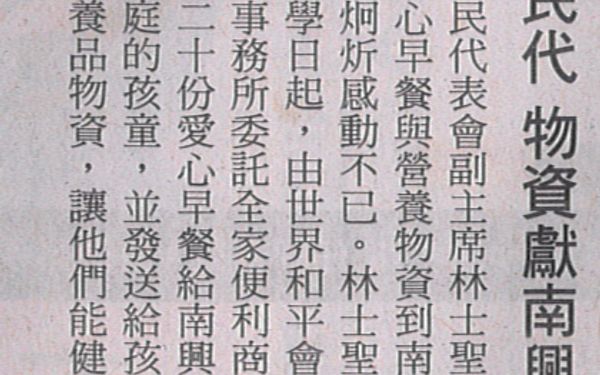 民代 物資獻南興
民代表會副主席林士聖
心早餐與營養物資到南
炯炘感動不已。林士聖
學日起，由世界和平會
事務所委託全家便利商
二十份愛心早餐給南興
庭的孩童，並發送給孩
養品物資，讓他們能健